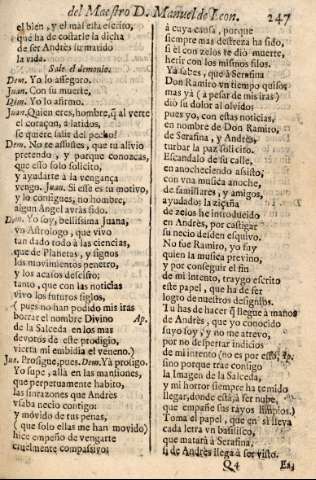 del Maestro D. Manuel de Leon. 247
del bien, y el mal està electo,
què ha de costarle la dicha
de ser Andrès su marido
la vida.
Sale el demonio.
Dem. Yo lo asseguro.
Juan. Con su muerte,
Dem. Yo lo afirmo.
Juan. Quien eres, hombre, q̃ al verte
el coraçon, à latidos,
se quiere salir del pecho!
Dem. No te assustes, que tu alivio
pretendo, y porque conozcas,
que esto solo solicito,
y ayudarte à la vengança
vengo. Juan. Si esse es tu motivo,
y lo consigues, no hombre,
algun Angel avràs sido.
Dem. Yo soy, bellissima Juana,
vn Astrologo, que vivo
tan dado todo à las ciencias,
que de Planetas, y signos
los movimientos penetro,
y los acasos descifro;
tanto, que con las noticias
vivo los futuros siglos,
( pues no han podido mis iras
borrar el nombre Divino Ap.
de la Salceda en los mas
devotos de este prodigio,
vicerà mi embidia el veneno.)
Jua. Prosigue, pues. Dem. Yà prosigo.
Yo supe, allà en las mansiones,
que perpetuamente habito,
las sinrazones que Andrès
vsaba necio contigo:
y movido de tus penas,
( que solo ellas me han movido)
hice empeño de vengarte
cruelmente compassivo;
à cuya causa, porque
siempre mas destreza ha sido,
si èl con zelos te diò muerte,
herir con los mismos filos.
Ya sabes, que à Serafina
Don Ramiro vn tiempo quiso;
mas yà ( a pesar de mis iras)
diò su dolor al olvido:
pues yo, con estas noticias,
en nombre de Don Ramiro,
de Serafina, y Andrès,
turbar la paz solicito.
Escandalo de su calle,
en anocheciendo assisto,
con vna musica anoche,
de familiares, y amigos,
ayudados; la ziçaña
de zelos he introducido
en Andrès, por castigar
su necio desden esquivo.
No fue Ramiro, yo fuy
quien la musica previno,
y por conseguir el fin
de mi intento, traygo escrito
este papel, que ha de ser
logro de nuestros designios.
Tu has de hacer q̃ llegue à manos
de Andrès, que yo conocido
suyo soy, y no me atrevo,
por no despertar indicios
de mi intento (no es por esso, Ap.
sino porque trae consigo
la Imagen de la Salceda,
y mi horror siempre ha temido
llegar, donde està, à ser nube,
que empañe sus rayos limpios.)
Toma el papel, que en sì lleva
cada letra vn basilisco,
que matarà à Serafina,
si de Andrès llega à ser visto.
Q4 Es,